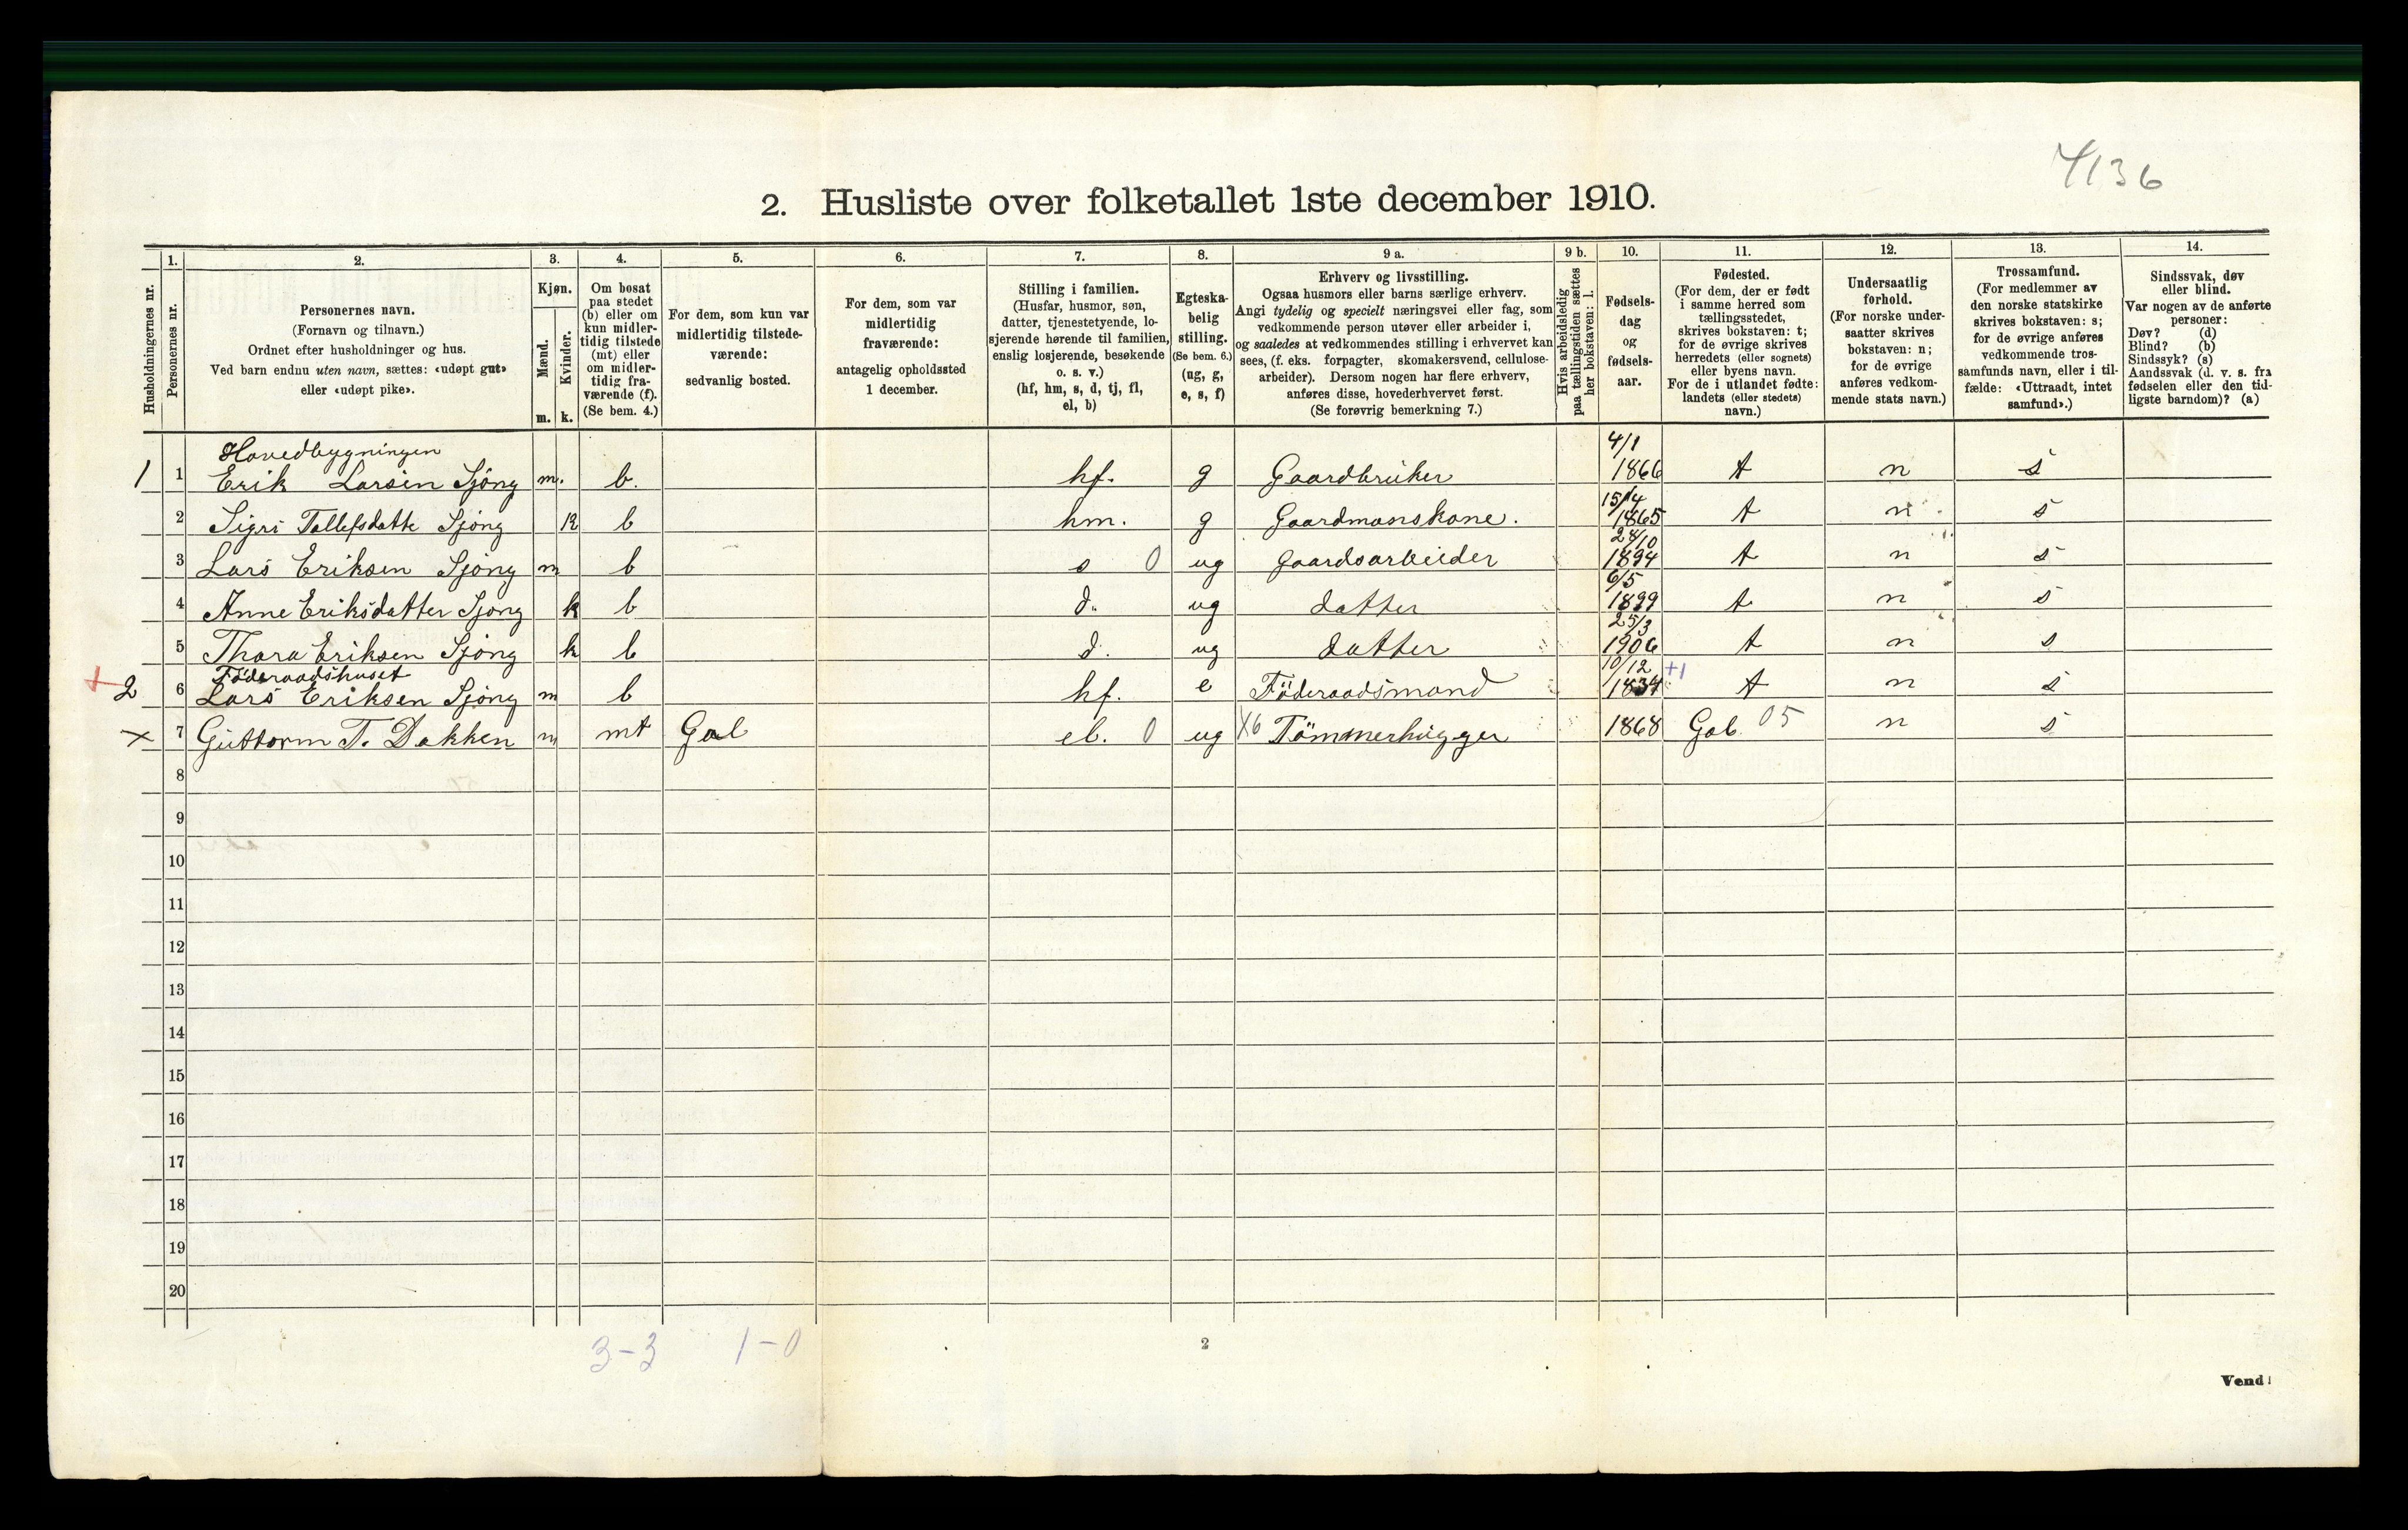 4136
2. Husliste over folketallet 1ste december 1910.
Husholdningernes nr.
1.
Personernes nr.
2.
Personernes navn.
(Fornavn og tilnavn.)
Ordnet efter husholdninger og hus.
Ved barn endnu uten navn, sættes: «udøpt gut»
eller «udøpt pike».
3.
Kjøn.
Mænd.
Kvinder.
m. k.
4.
Om bosat
paa stedet
(b) eller om
kun midler-
tidig tilstede
(mt) eller
om midler-
tidig fra-
værende (f).
(Se bem. 4.)
5.
For dem, som kun var
midlertidig tilstede-
værende:
sedvanlig bosted.
6.
For dem, som var
midlertidig
fraværende:
antagelig opholdssted
1 december.
7.
Stilling i familien.
(Husfar, husmor, søn,
datter, tjenestetyende, lo-
sjerende hørende til familien,
enslig losjerende, besøkende
o. s. v.)
(hf, hm, s, d, tj, fl,
el, b)
8.
Egteska-
belig
stilling.
(Se bem. 6.)
(ug, g,
e, s, f)
9 a.
Erhverv og livsstilling.
Ogsaa husmors eller barns særlige erhverv.
Angi tydelig og specielt næringsvei eller fag, som
vedkommende person utøver eller arbeider i,
og saaledes at vedkommendes stilling i erhvervet kan
sees, (f. eks. forpagter, skomakersvend, cellulose-
arbeider). Dersom nogen har flere erhverv,
anføres disse, hovederhvervet først.
(Se forøvrig bemerkning 7.)
9 b.
Hvis arbeidsledig
paa tællingstiden sættes
her bokstaven: l.
10.
Fødsels-
dag
og
fødsels-
aar.
11.
Fødested.
(For dem, der er født
i samme herred som
tællingsstedet,
skrives bokstaven: t;
for de øvrige skrives
herredets (eller sognets)
eller byens navn.
For de i utlandet fødte:
landets (eller stedets)
navn.)
12.
Undersaatlig
forhold.
(For norske under-
saatter skrives
bokstaven: n;
for de øvrige
anføres vedkom-
mende stats navn.)
13.
Trossamfund.
(For medlemmer av
den norske statskirke
skrives bokstaven: s;
for de øvrige anføres
vedkommende tros-
samfunds navn, eller i til-
fælde: «Uttraadt, intet
samfund».)
14.
Sindssvak, døv
eller blind.
Var nogen av de anførte
personer:
Døv? (d)
Blind? (b)
Sindssyk? (s)
Aandssvak (d. v. s. fra
fødselen eller den tid-
ligste barndom)? (a)
Hovedbygningen 4/1
1 1 Erik Larsen Sjöng m. b. hf. g Gaardbruker 1866 t n s
15/4
2 Sigri Tollefsdatte Sjöng k b hm. g Gaardmanskone. 1865 t n s
24/10
3 Lars Eriksen Sjöng m b s 0 ug gaardsarbeider 1894 t n s
6/5
4 Anne Eriksdatter Sjöng k b d. ug datter 1899 t n s
25/3
5 Thora Eriksen Sjöng k b d. ug datter 1906 t n s
Föderaadshuset 10/12 +1
+ 2 6 Lars Eriksen Sjöng m b hf. e Föderaadsmand 1834 t n s
x 7 Guttorm T. Dokken m mt Gol el. 0 ug X6 Tömmerhugger 1868 Gol. 05 n s
8
9
10
11
12
13
14
15
16
17
18
19
20
3-3 1-0
2
Vend!